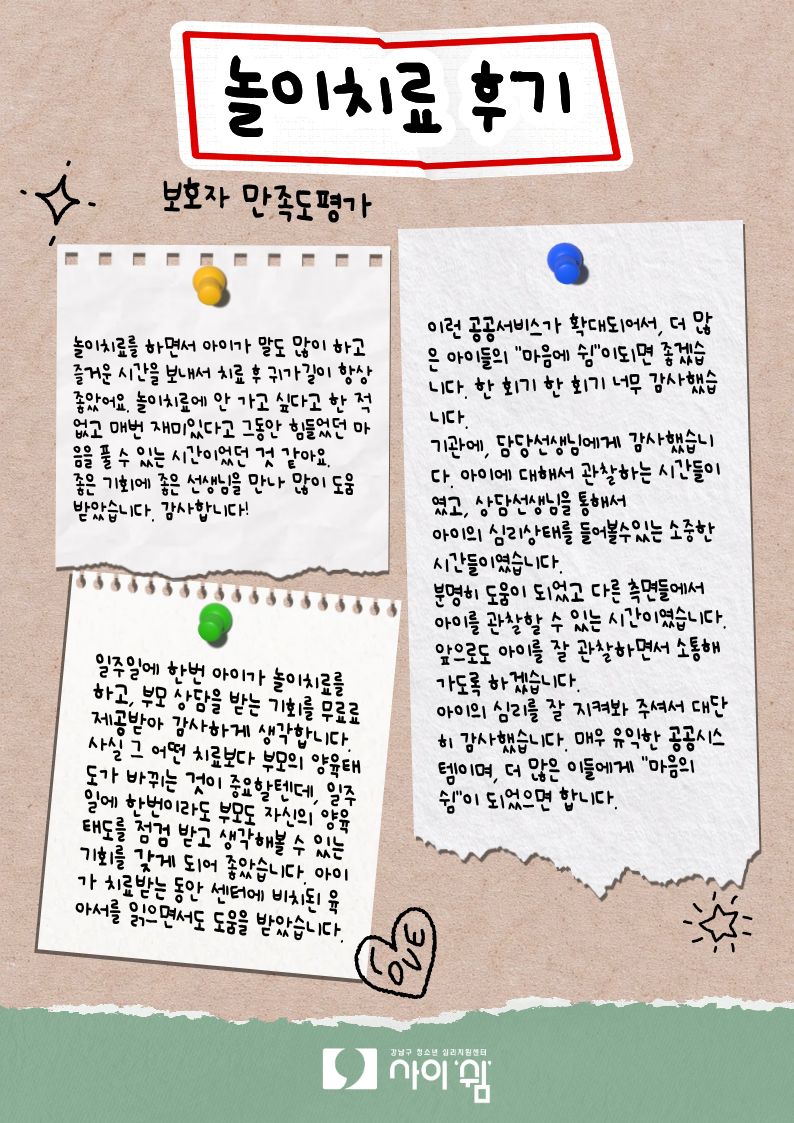 놀이치료 후기
보호자 만족도평가
놀이치료를 하면서 아이가 말도 많이 하고
즐거운 시간을 보내서 치료 후 귀가길이 항상
좋았어요. 놀이치료에 안 가고 싶다고 한 적
없고 매번 재미있다고 그동안 힘들었던 마
음을 풀 수 있는 시간이었던 것 같아요.
좋은 기회에 좋은 선생님을 만나 많이 도움
받았습니다. 감사합니다!
일주일에 한번 아이가 놀이치료를
하고, 부모 상담을 받는 기회를 무료로
제공받아 감사하게 생각합니다.
사실 그 어떤 치료보다 부모의 양육태
도가 바뀌는 것이 중요할텐데, 일주
일에 한번이라도 부모도 자신의 양육
태도를 점검 받고 생각해볼 수 있는
기회를 갖게 되어 좋았습니다. 아이
가 치료받는 동안 센터에 비치된 육
아서를 읽으면서도 도움을 받았습니다.
이런 공공서비스가 확대되어서, 더 많
은 아이들의 "마음에 쉼"이되면 좋겠습
니다. 한 회기 한 회기 너무 감사했습
니다.
기관에, 담당선생님에게 감사했습니
다. 아이에 대해서 관찰하는 시간들이
였고, 상담선생님을 통해서
아이의 심리상태를 들어볼수있는 소중한
시간들이였습니다.
분명히 도움이 되었고 다른 측면들에서
아이를 관찰할 수 있는 시간이였습니다.
앞으로도 아이를 잘 관찰하면서 소통해
가도록 하겠습니다.
아이의 심리를 잘 지켜봐 주셔서 대단
히 감사했습니다. 매우 유익한 공공시스
템이며, 더 많은 이들에게 "마음의
쉼"이 되었으면 합니다.
LOVE
강남구 청소년 심리지원센터
사이쉼